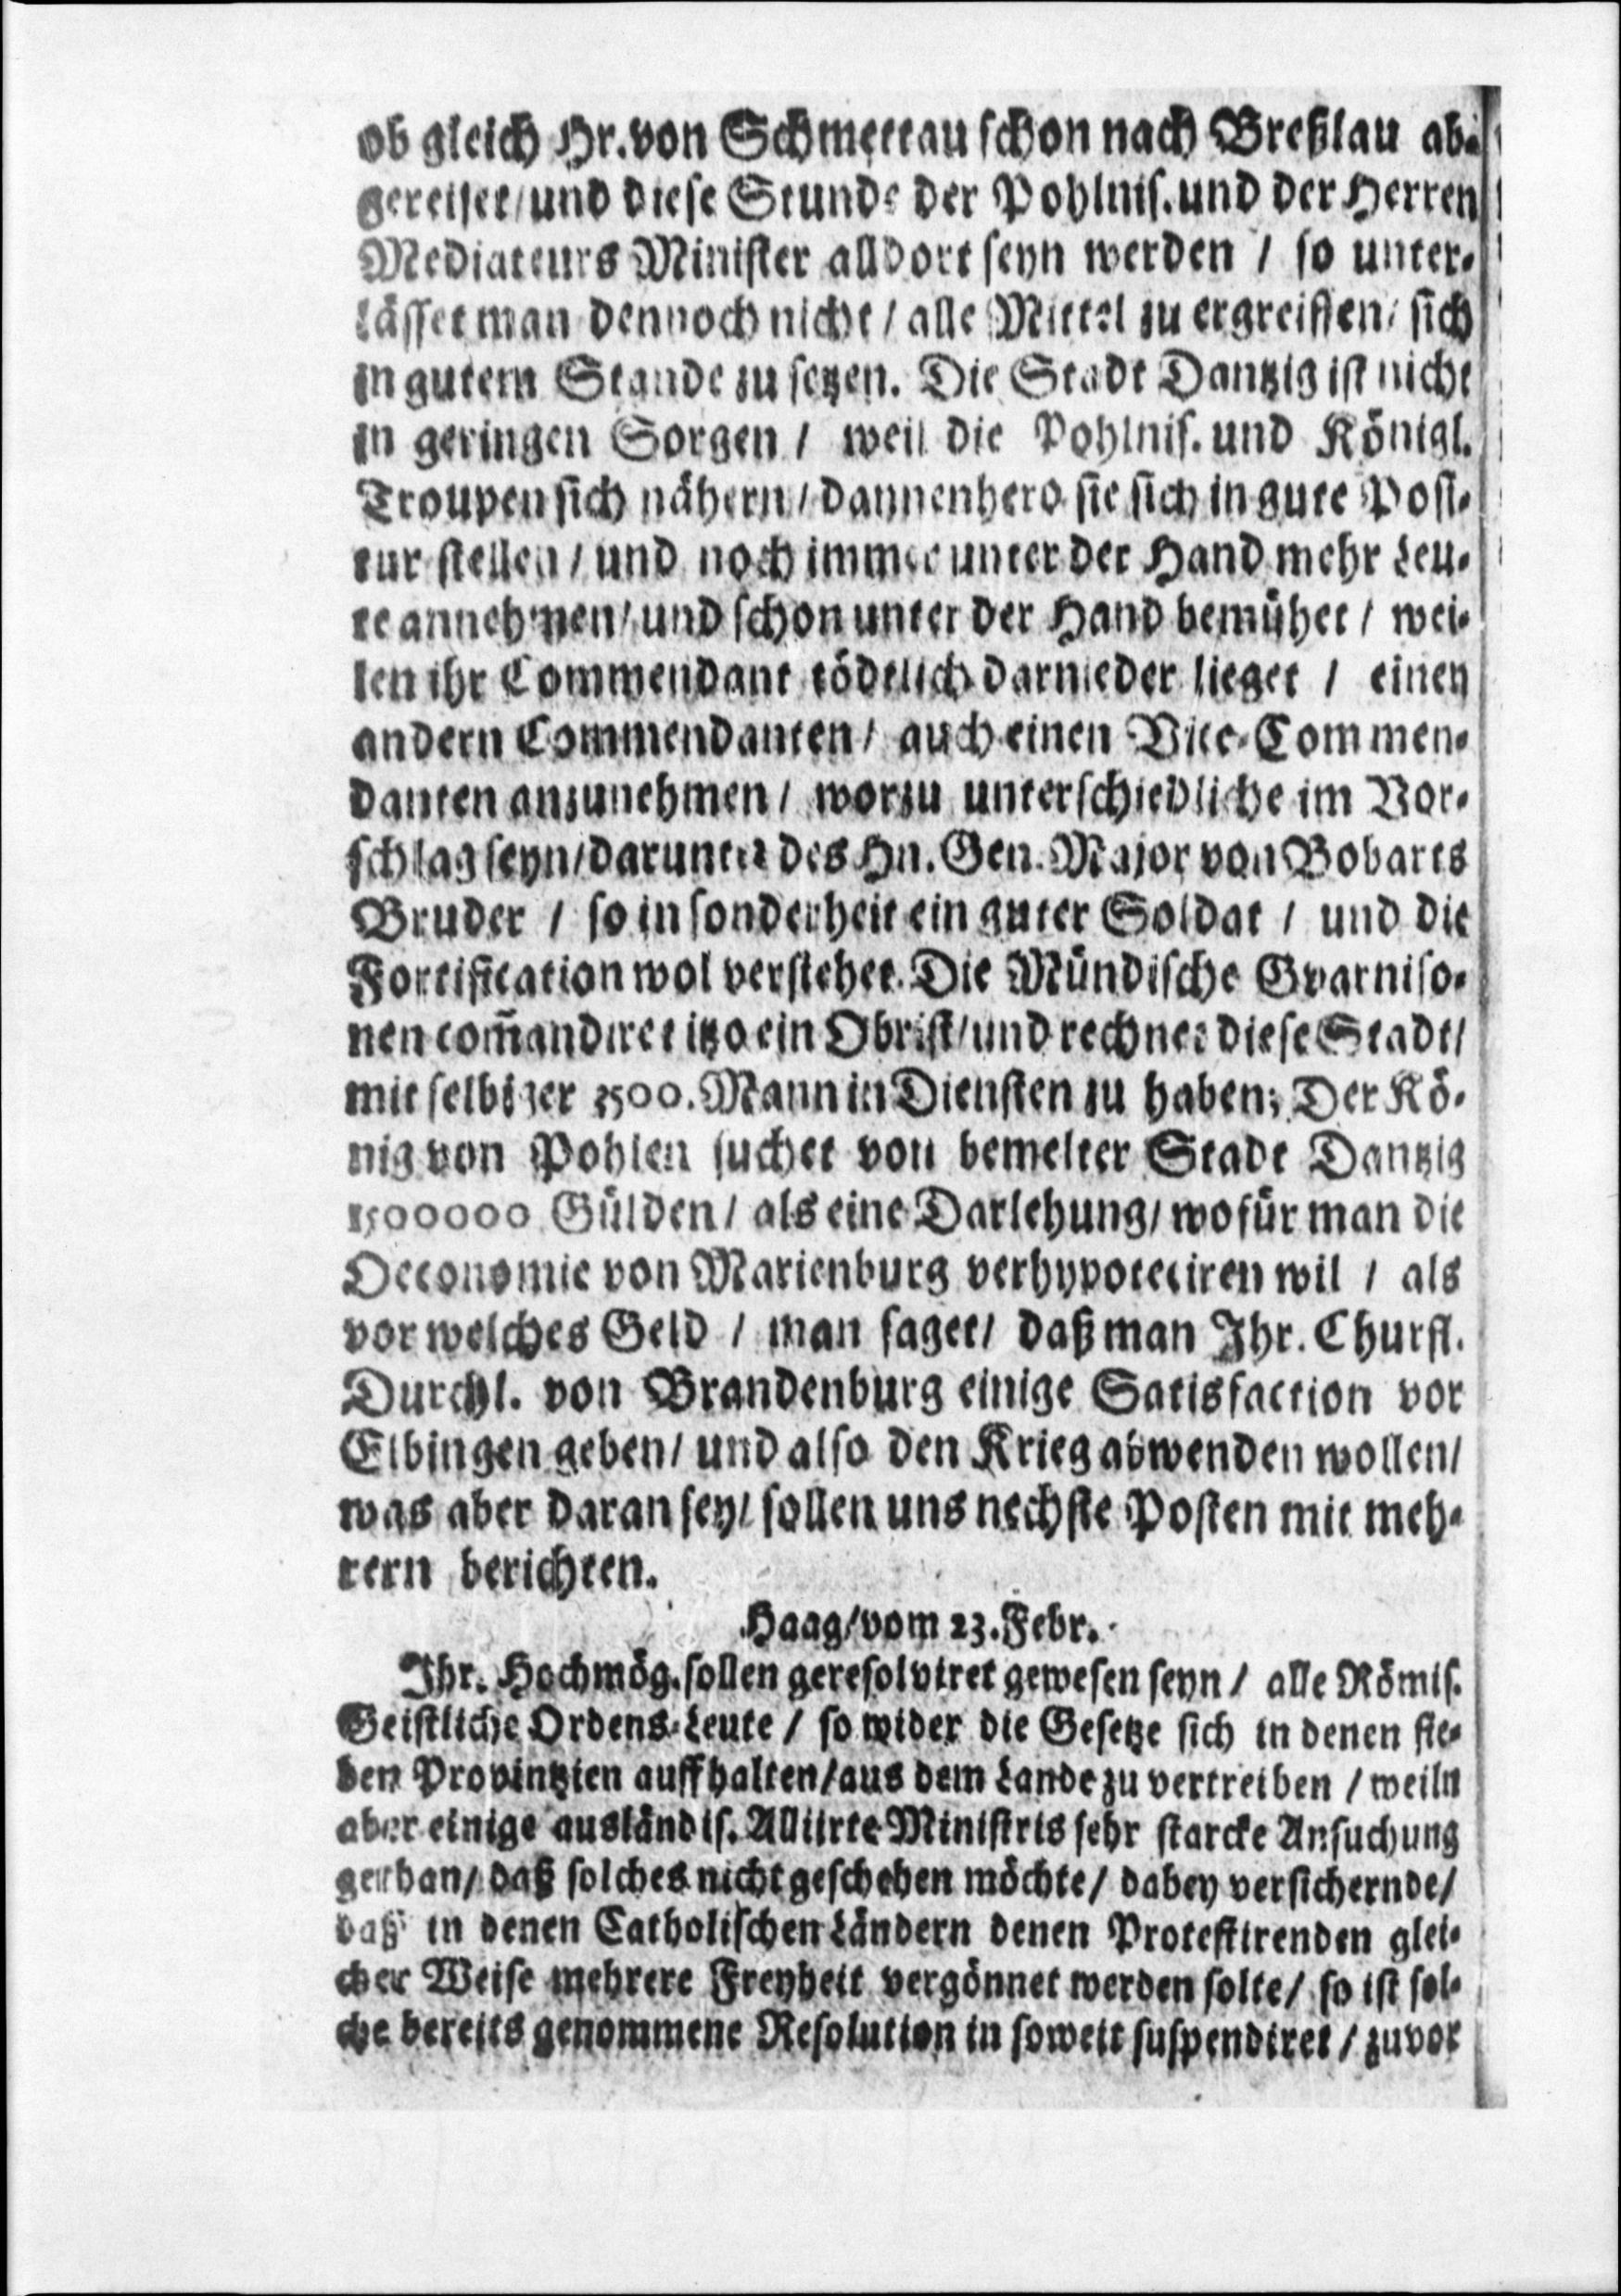 ob gleich Hr. von Schmettau schon nach Breßlau ab-
gereiset/ und diese Stunde der Pohlnis. und der Herren
Mediateurs Minister alldort seyn werden / so unter-
lässet man dennoch nicht / alle Mittel zu ergreiffen/ sich
in gutem Stande zu setzen. Die Stadt Dantzig ist nicht
in geringen Sorgen / weil die Pohlnis. und Königl.
Troupen sich nähern / dannenhero sie sich in gute Posi-
tur stellen / und noch immer unter der Hand mehr Leu-
te annehmen/ und schon unter der Hand bemühet / wei-
len ihr Commendant tödtlich darnieder lieget / einen
andern Commendanten / auch einen Vice-Commen-
danten anzunehmen / worzu unterschiedliche im Vor-
schlag seyn/ darunter des Hn. Gen. Major von Bobarts
Bruder / so insonderheit ein guter Soldat / und die
Fortification wol verstehet. Die Mündische Gvarniso-
nen com̃andiret itzo ein Obrist/ und rechnet diese Stadt/
mit selbiger 3500. Mann in Diensten zu haben; Der Kö-
nig von Pohlen suchet von bemelter Stadt Dantzig
1500000 Gülden / als eine Darlehung/ wofür man die
Oeconomie von Marienburg verhypoteciren wil / als
vor welches Geld / man saget/ daß man Ihr. Churfl.
Durchl. von Brandenburg einige Satisfaction vor
Elbingen geben/ und also den Krieg abwenden wollen/
was aber daran sey/ sollen uns nechste Posten mit meh-
rern berichten.
Haag/ vom 23. Febr.
Ihr. Hochmög. sollen geresolviret gewesen seyn / alle Römis.
Geistliche Ordens-Leute / so wider die Gesetze sich in denen sie-
ben Provintzien auffhalten/ aus dem Lande zu vertreiben / weiln
aber einige ausländis. Alliirte Ministris sehr starcke Ansuchung
gethan/ daß solches nicht geschehen möchte/ dabey versichernde/
daß in denen Catholischen Ländern denen Protestirenden glei-
cher Weise mehrere Freyheit vergönnet werden solte/ so ist sol-
che bereits genommene Resolution in soweit suspendiret / zuvor